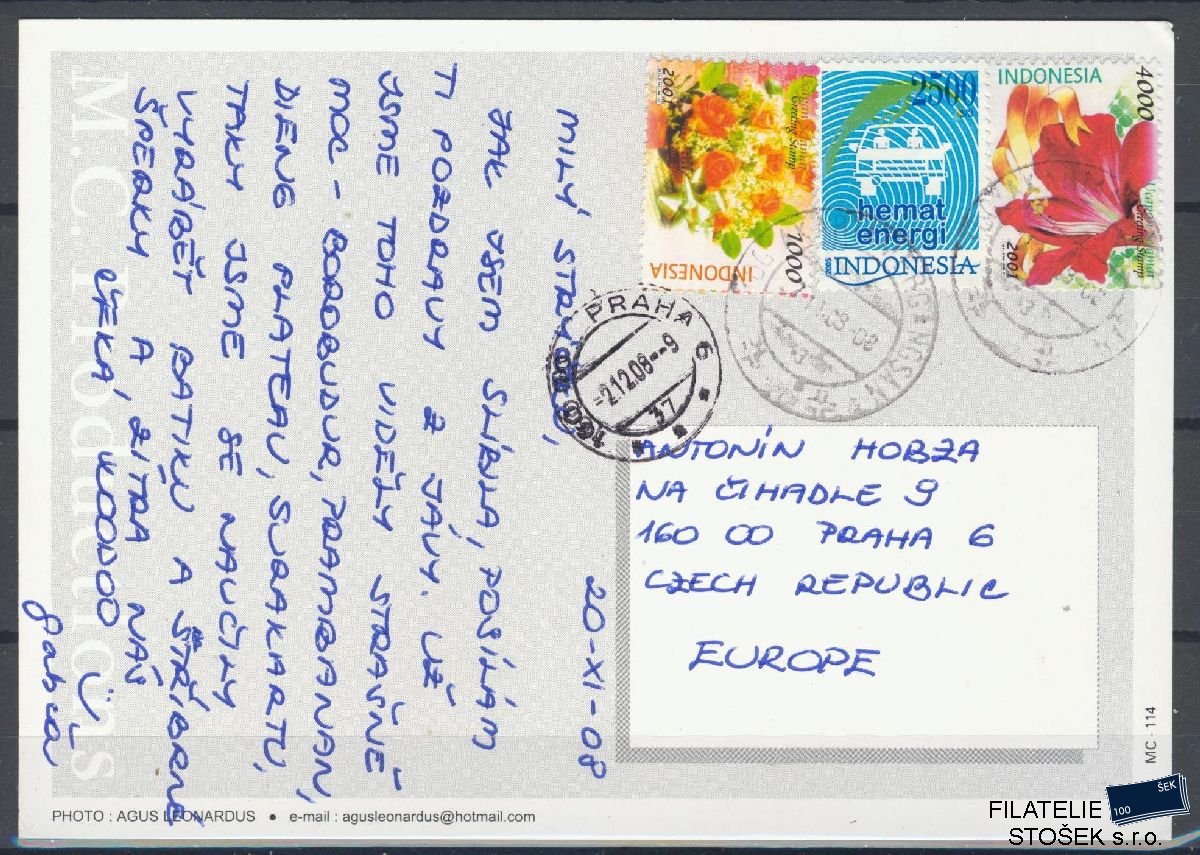 M.C. Productions
20-XI-08
MILÝ STRÝČKU,
JAK JSEM SLÍBILA, POSÍLÁM
TI POZDRAVY Z JÁVY. UŽ
JSME TOHO VIDĚLY STRAŠNĚ
MOC - BOROBUDUR, PRAMBANAN,
DIENG PLATEAU, SURAKARTU,
TAKY JSME SE NAUČILY
VYRÁBĚT BATIKU A STŘÍBRNÉ
ŠPERKY A ZÍTRA NÁS
ČEKÁ KOODOO Ü
2001
INDONESIA
1000
2500
hemat
energi
INDONESIA
INDONESIA
4000
2001
Greeting Stamp
PRAHA 6
-2.12.08--9
37
160 00
ANTONÍN HOBZA
NA ČIHADLE 9
160 00 PRAHA 6
CZECH REPUBLIC
EUROPE
MC - 114
PHOTO : AGUS LEONARDUS ● e-mail : agusleonardus@hotmail.com
FILATELIE
STOŠEK s.r.o.
100
ŠEK